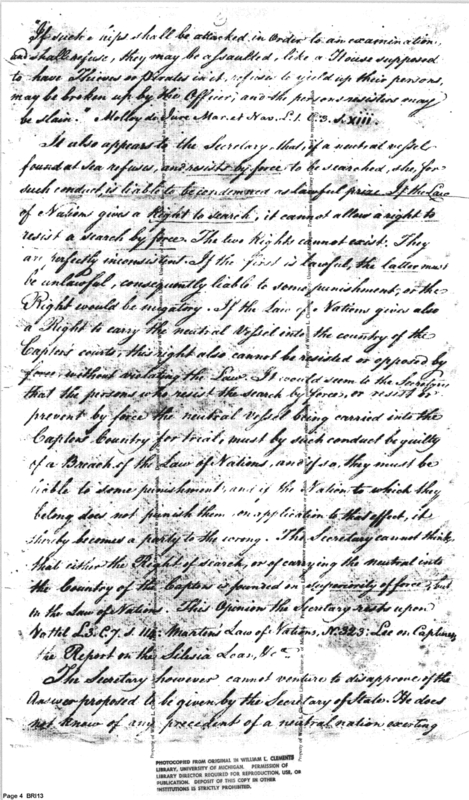 "If such ships shall be attacked, in Order to an examination,
and shall refuse, they may be assaulted, like a House supposed
to have Thieves or Pirates in it, refuses to yield up their persons,
may be broken up by the Officer, and the persons resisters may
be slain." Molloy de Jure Mar. et Nav. L.1. C.3. S. xiii.
It also appears to the Secretary, that, if a neutral vessel
found at sea refuses, and resists by force to be searched, she, for
such conduct is liable to be condemned as lawful prize. If the Law
of Nations gives a Right to search, it cannot allow a right to
resist a search by force. The two Rights cannot exist. They
are perfectly inconsistent. If the first is lawful, the latter must
be unlawful, consequently liable to some punishment, or the
Right would be nugatory. If the Law of Nations gives also
a Right to carry the neutral Vessel into the country of the
Captors courts, this right also cannot be resisted or opposed by
force, without violating the Law. It would seem to the
that the persons who resist the search by force, or resist or
prevent by force the neutral vessel being carried into the
Captors Country for trial, must by such conduct be guilty
of a Breach of the Law of Nations, and if so, they must be
liable to some punishment, and if the Nation, to which they
belong does not punish them on application to that effect, it
thereby becomes a party to the wrong. The Secretary cannot think
that either the Right of search, or of carrying the neutral into
the Country of the Captors is founded on superiority of force, but
in the Law of Nations. This Opinion the Secretary rests upon
Vattel L.3. C.7. S. 114: Martin's Law of Nations, 323: Lee on Captures,
the Report on the Silesia Loan, &ca.
The Secretary however cannot venture to disapprove of the
Answer proposed to be given by the Secretary of State. He does
not know of any precedent of a neutral nation exerting
PHOTOCOPIED FROM ORIGINAL IN WILLIAM L. CLEMENTS
LIBRARY, UNIVERSITY OF MICHIGAN. PERMISSION OF
LIBRARY DIRECTOR REQUIRED FOR REPRODUCTION, USE, OR
PUBLICATION. DEPOSIT OF THIS COPY IN OTHER
INSTITUTIONS IS STRICTLY PROHIBITED.
Page 4 BRI13